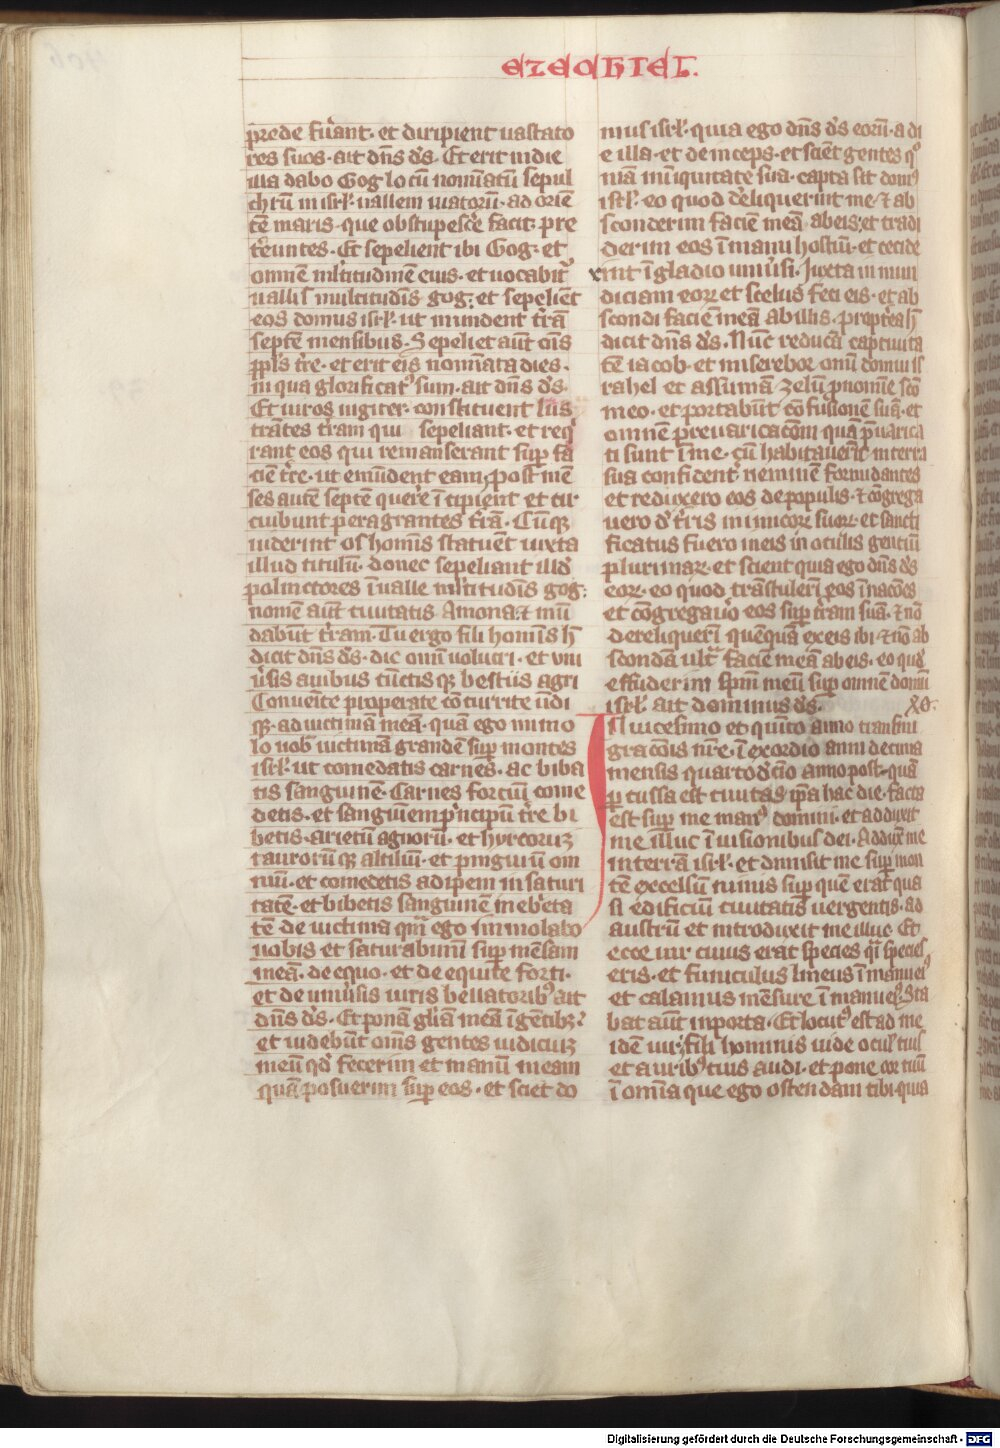 EZECHIEL.
prede fuerant. et diripient uastato
res suos. ait dn̄s d̄s. Et erit in die
illa dabo Gog locū nominatū sepul
chrū in isrl̄. uallem uiatorū. ad orien
tē maris. que obstupescere facit. pre
tereuntes. Et sepelient ibi Gog. et
omnē multitudinē eius. et uocabit᷑
uallis multitudinis gog. et sepeliēt
eos domus isrl̄. ut mundent t̄rā
septē mensibus. Sepeliet aūt om̄s
ppl̄s t̄re. et erit eis nominata dies.
in qua glorificatꝰ sum. ait dn̄s d̄s.
Et uiros iugiter. constituent lus
trātes t̄ram qui sepeliant. et reqͥ
rant eos qui remanserant sup̄ fa
ciē t̄re. ut emūdent eam. post mē
ses autē septē querere īcipient et cir
cuibunt peragrantes t̄rā. Cūqꝫ
uiderint os hominis statuēt iuxta
illud titulū. donec sepeliant illd̄
polinctores ī ualle multitudīs gog:
nomē aūt ciuitatis Amona. ⁊ mū
dabūt t̄ram. Tu ergo fili hominis h̄
dicit dn̄s d̄s. dic omī uolucri. et uni
ūsis auibus cūctisqꝫ bestiis agri
Conuenite properate cōcurrite ūdi
qꝫ. ad uictimā meā. quā ego immo
lo uob̄ uictimā grandē sup̄ montes
isrl̄. ut comedatis carnes. ac biba
tis sanguinē. Carnes fortiū come
detis. et sanguinem p̄ncipum t̄re bi
betis. arietū agnorū. et hyrcorūꝫ
taurorūqꝫ altiliū. et pinguiū om
niū. et comedetis adipem in saturi
tatē. et bibetis sanguinem in ebrieta
tē de uictima qm̄ ego immolabo
uobis et saturabimī sup̄ mēsam
meā. de equo. et de equite forti.
et de uniūsis uiris bellatoribꝰ ait
dn̄s d̄s. Et ponā gliam meā ī gētibꝫ.
et uidebūt om̄s gentes iudiciūꝫ
meū qd̄ fecerim et manū meam
quā posuerim sup̄ eos. et sciēt do
mus isrl̄. quia ego dn̄s d̄s eorū. a di
e illa. et deinceps. et sciēt gentes qͦ
niā in iniquitate sua. capta sit domꝰ
isrl̄. eo quod dereliquerint me. ⁊ ab
sconderim faciē meā ab eis. et tradi
derim eos ī manu hostiū. et cecide
rint ī gladio uniūsi. Juxta inmun
diciam eorꝝ et scelus feci eis. et ab
scondi faciē meā ab illis. propterea h̄
dicit dn̄s d̄s. Nūc reducā captiuita
tē iacob. et miserebor omī domui is
rahel et assumā zelū p nomine sc̄o
meo. et portabūt cōfusionē suā. et
omnē preuaricacōm quā p̄uarica
ti sunt ī me. cū habitauerīt in terra
sua confident᷑ neminē formidantes
et reduxero eos de populis. ⁊ cōgrega
uero de t̄ris inimicorꝝ suorꝝ. et sancti
ficatus fuero in eis in oculis gentiū
plurimarꝝ. et scient quia ego dn̄s d̄s
eorꝝ. eo quod trāstulerī eos ī nacōes
et cōgregauio eos sup̄ t̄ram suā. ⁊ nō
dereliquerī quēquā ex eis ibi. ⁊ nō ab
scondā ultͣ faciē meā ab eis. eo quod̄
effuderim sp̄m meū sup̄ omnē domū
isrl̄. ait dominus d̄s. XL.
IN uicesimo et quīto anno transmi
gracōis nr̄e. ī exordio anni decima
mensis quartodecīo anno postquā
p̱cussa est ciuitas ip̄a hac die. facta
est sup̄ me manꝰ domini. et adduxit
me illuc ī uisionibus dei. Adduxit me
in terrā isrl̄. et dimisit me sup̄ mon
tē excelsū nimis sup̄ quē erat qua
si edificiū ciuitatis uergentis. ad
austrū et introduxit me illuc. Et
ecce uir cuius erat species qͣsi species
eris. et funiculus lineus ī manu eiꝰ
et calamus mēsure ī manu eiꝰ. Sta
bat aūt in porta. Et locutꝰ est ad me
idē uir. fili hominis uide oculis tuis
et auribꝰ tuis audi. et pone cor tuū
ī omīa que ego ostendam tibi. quia
Digitalisierung gefördert durch die Deutsche Forschungsgemeinschaft - DFG